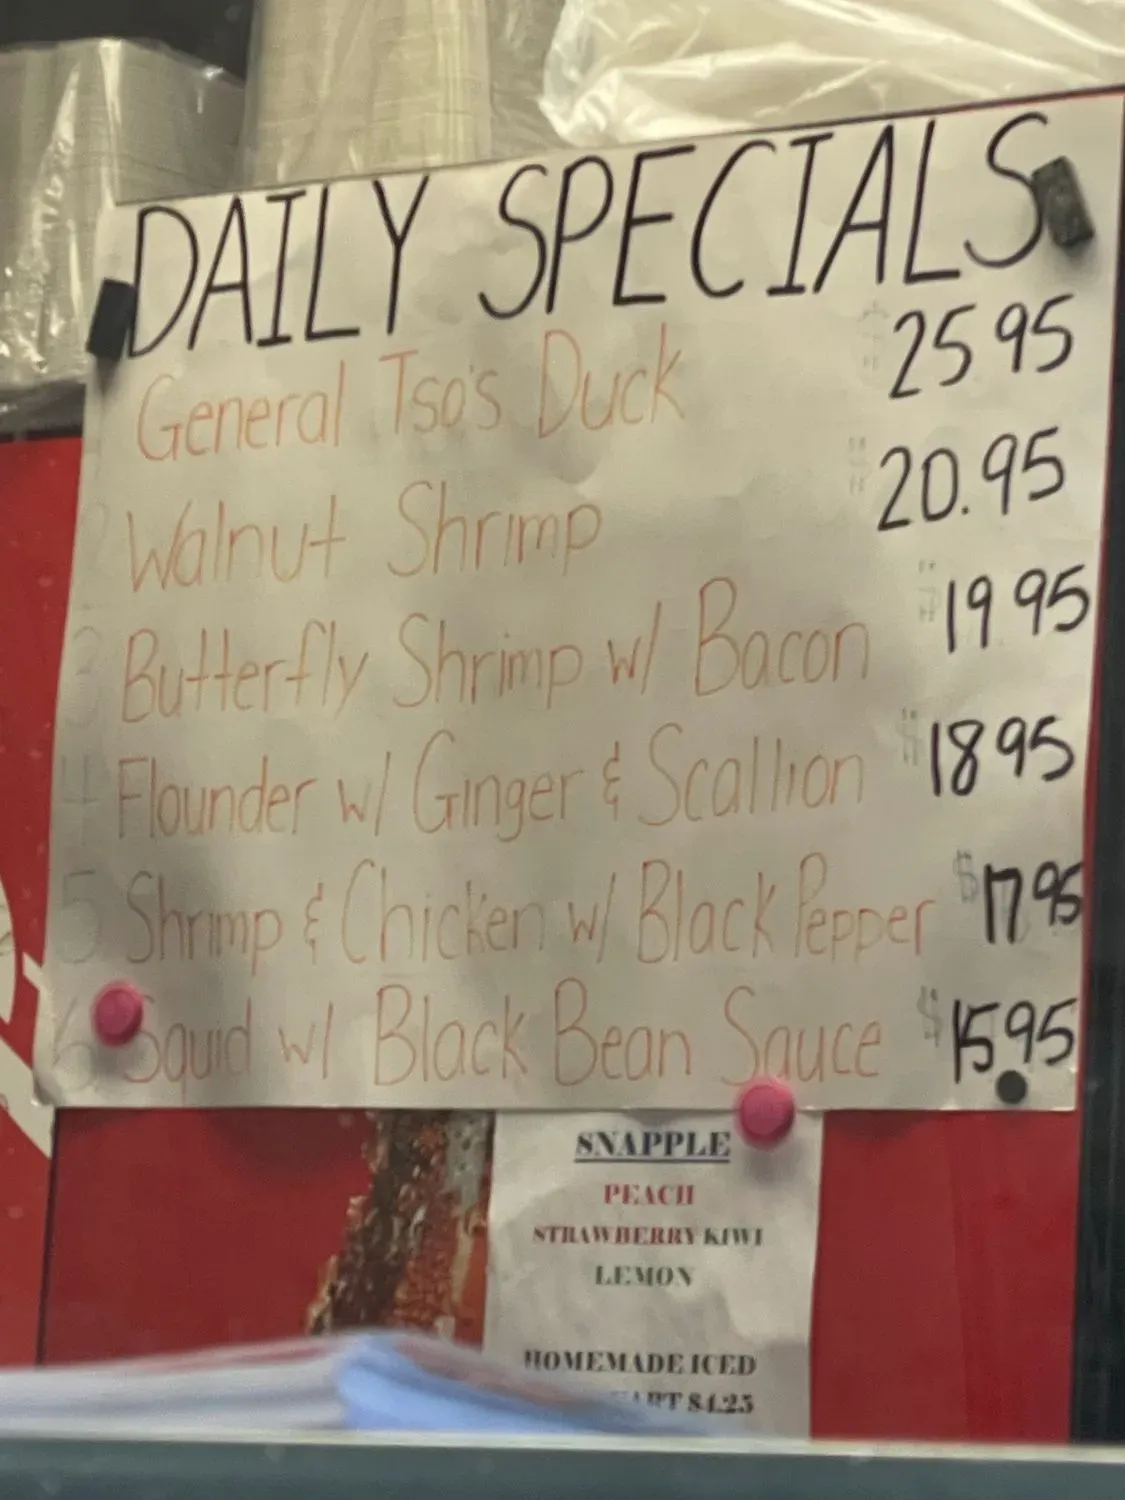 DAILY SPECIALS
General Tso's Duck 25 95
2 Walnut Shrimp 20.95
3 Butterfly Shrimp w/ Bacon 19 95
4 Flounder w/ Ginger & Scallion 18 95
5 Shrimp & Chicken w/ Black Pepper $17 95
6 Squid w/ Black Bean Sauce $15.95
SNAPPLE
PEACH
STRAWBERRY KIWI
LEMON
HOMEMADE ICED
$4.25